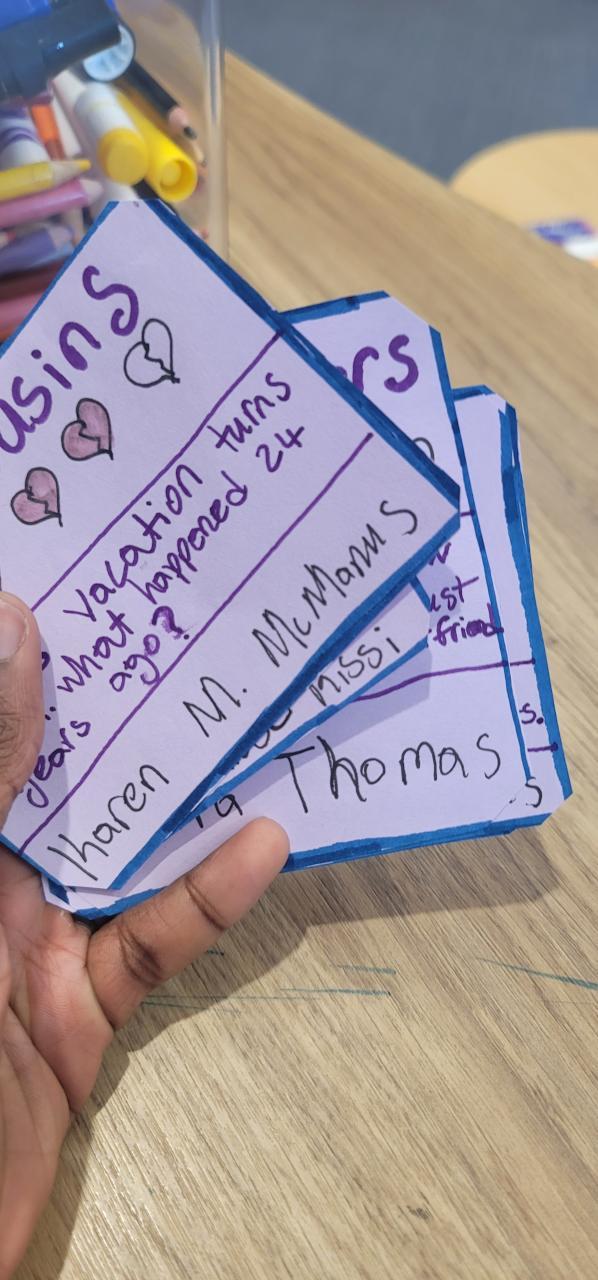 usins
vacation turns
.. what happened 24
years ago?
Karen M. McManus
rs
ust
friend
nissi
Thomas
s.
s